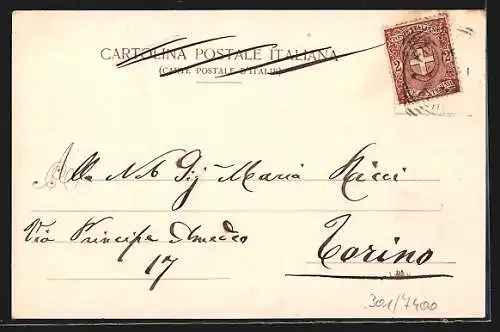 CARTOLINA POSTALE ITALIANA
(CARTE POSTALE D'ITALIE)
2
Alla N. D. Sig. Maria Ricci
Via Principe Amedeo
17
Torino
301/7400